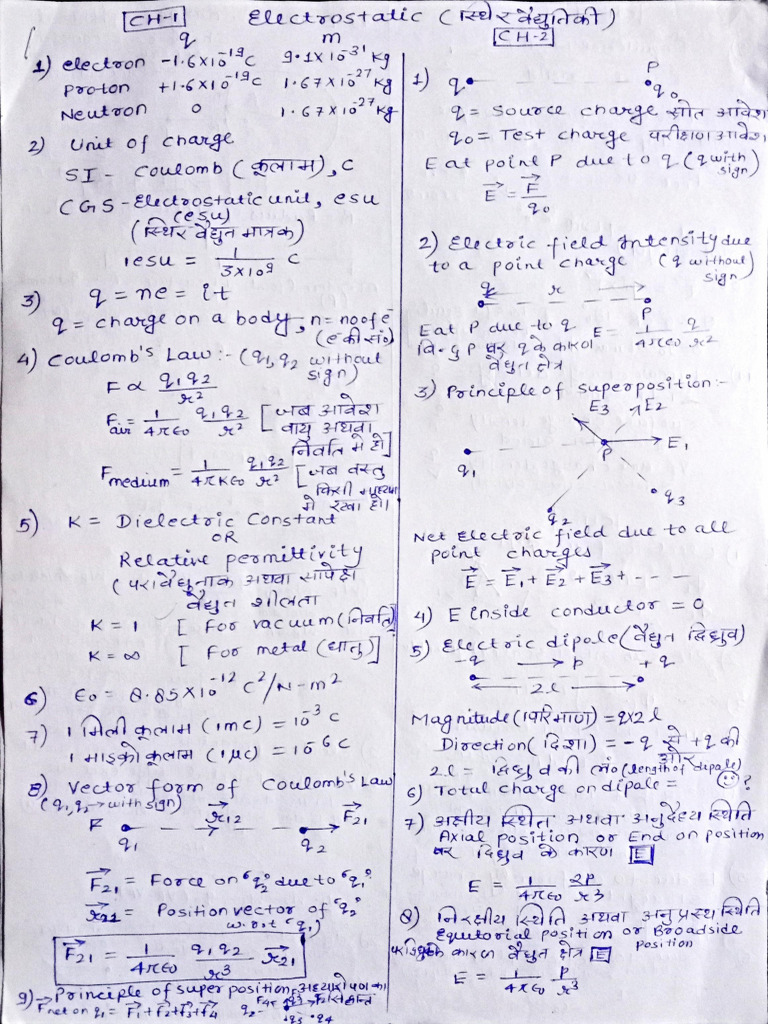 CH-1 Electrostatic (स्थिर वैद्युतिकी)
q m
1) electron -1.6×10⁻¹⁹C 9.1×10⁻³¹ kg
Proton +1.6×10⁻¹⁹C 1.67×10⁻²⁷ kg
Neutron 0 1.67×10⁻²⁷ kg
2) Unit of charge
SI - Coulomb (कूलाम), C
CGS - Electrostatic unit, esu
(esu)
(स्थिर वैद्युत मात्रक)
1esu = 1/3×10⁹ C
3) q = ne = it
q = charge on a body, n = no of e⁻
(e की सं०)
4) Coulomb's Law :- (q₁,q₂ without sign)
F ∝ q₁q₂/r²
F air = 1/4πε₀ q₁q₂/r² [जब आवेश
वायु अथवा
निर्वात मे हो]
F medium = 1/4πKε₀ q₁q₂/r² [जब वस्तु
किसी माध्यम
मे रखा हो]
5) K = Dielectric Constant
OR
Relative permittivity
(परावैद्युतांक अथवा सापेक्ष
वैद्युत शीलता
K = 1 [For vacuum (निर्वात)]
K = ∞ [For metal (धातु)]
6) ε₀ = 8.85×10⁻¹² C²/N-m²
7) 1 मिली कूलाम (1mC) = 10⁻³ C
1 माइक्रो कूलाम (1μC) = 10⁻⁶ C
8) Vector form of Coulomb's Law
(q₁,q₂ → with sign)
r⃗₁₂ F⃗₂₁
q₁ q₂
F⃗₂₁ = Force on "q₂" due to "q₁"
r⃗₂₁ = Position vector of "q₂"
w.r.t "q₁"
F⃗₂₁ = 1/4πε₀ q₁q₂/r³ r⃗₂₁
9) Principle of super position,
F⃗net on q₁ = F⃗₁+F⃗₂+F⃗₃+F⃗₄
q₂ q₃ q₄
CH-2
1) q P
q₀
q = Source charge स्रोत आवेश
q₀ = Test charge परीक्षण आवेश
E at point P due to q (q with sign)
E⃗ = F⃗/q₀
2) Electric field Intensity due
to a point charge (q without sign)
q r P
E at P due to q E = 1/4πε₀ q/r²
P पर q के कारण
वैद्युत क्षेत्र
3) Principle of superposition :-
E₃ E₂
P E₁
q₁
q₃
q₂
Net Electric field due to all
point charges
E⃗ = E⃗₁ + E⃗₂ + E⃗₃ + - - -
4) E inside conductor = 0
5) Electric dipole (वैद्युत द्विध्रुव)
-q p +q
2l
Magnitude (परिमाण) = q×2l
Direction (दिशा) = -q से +q की
ओर
2l = द्विध्रुव की लं० (length of dipole)
6) Total charge on dipole = ?
7) अक्षीय स्थिति अथवा अनुदैर्ध्य स्थिति
Axial position or End on position
पर द्विध्रुव के कारण E
E = 1/4πε₀ 2P/r³
8) निरक्षीय स्थिति अथवा अनुप्रस्थ स्थिति
Equitorial position or Broadside
position
कारण वैद्युत क्षेत्र E
E = 1/4πε₀ P/r³